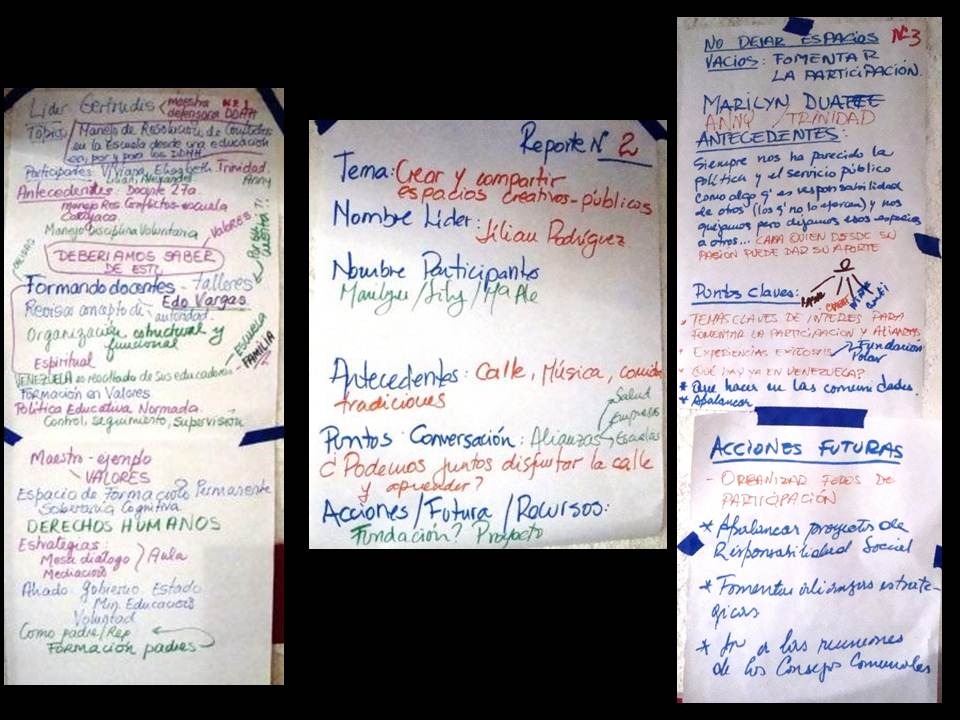 Líder Gertrudis
maestra Nº 1
defensora DDHH
Tópico Manejo de Resolución de Conflictos
en la Escuela desde una educación
en, por y para los DDHH
Participantes: Viviana, Elizabeth, Trinidad,
Lilian, Alexander Anny
Antecedentes: Docente 27a.
manejo Res. Conflictos-escuela
Manejo Disciplina Voluntaria
VALORES
DEBERIAMOS SABER
DE ESTO
Formando docentes - talleres
Revisar concepto de autoridad.
Edo Vargas
Organización estructural y
funcional
ESCUELA
FAMILIA
Espiritual
VENEZUELA es resultado de sus educadores
Formación en Valores
Política Educativa Normada.
Control, seguimiento, supervisión
Maestro - ejemplo
VALORES
Espacio de Formación Permanente
Soberanía Cognitiva
DERECHOS HUMANOS
Estrategias:
Mesa diálogo
Mediación
Aula
Aliado Gobierno Estado
Min. Educación
Voluntad
Como padre/Rep
Formación padres
Reporte N 2
Tema: Crear y compartir
espacios creativos-públicos
Nombre Líder:
Lilian Rodríguez
Nombre Participantes
Antecedentes: Calle, Música, comida
tradiciones
Salud
Empresas
Puntos Conversación: Alianzas Escuelas
¿Podemos juntos disfrutar la calle
y aprender?
Acciones/Futura/Recursos:
Fundación? Proyecto
NO DEJAR ESPACIOS Nº3
VACIOS: FOMENTAR
LA PARTICIPACIÓN.
MARILYN
ANNY / TRINIDAD
ANTECEDENTES:
Siempre nos ha parecido la
política y el servicio público
como algo q' es responsabilidad
de otros (los q' no lo ejercen) y nos
quejamos pero dejamos esos espacios
a otros... CADA QUIEN DESDE SU
PASION PUEDE DAR SU APORTE
Puntos Claves:
* TEMAS CLAVES DE INTERES PARA
FOMENTAR LA PARTICIPACION Y ALIANZAS
* EXPERIENCIAS EXITOSAS Fundación
Polar
* QUÉ HAY YA EN VENEZUELA?
* Que hacer en las comunidades
* Apalancar
ACCIONES FUTURAS
- ORGANIZAR FOROS DE
PARTICIPACIÓN
* Apalancar proyectos de
Responsabilidad Social
* Fomentar alianzas estraté-
gicas
* Ir a las reuniones
de los Consejos Comunales